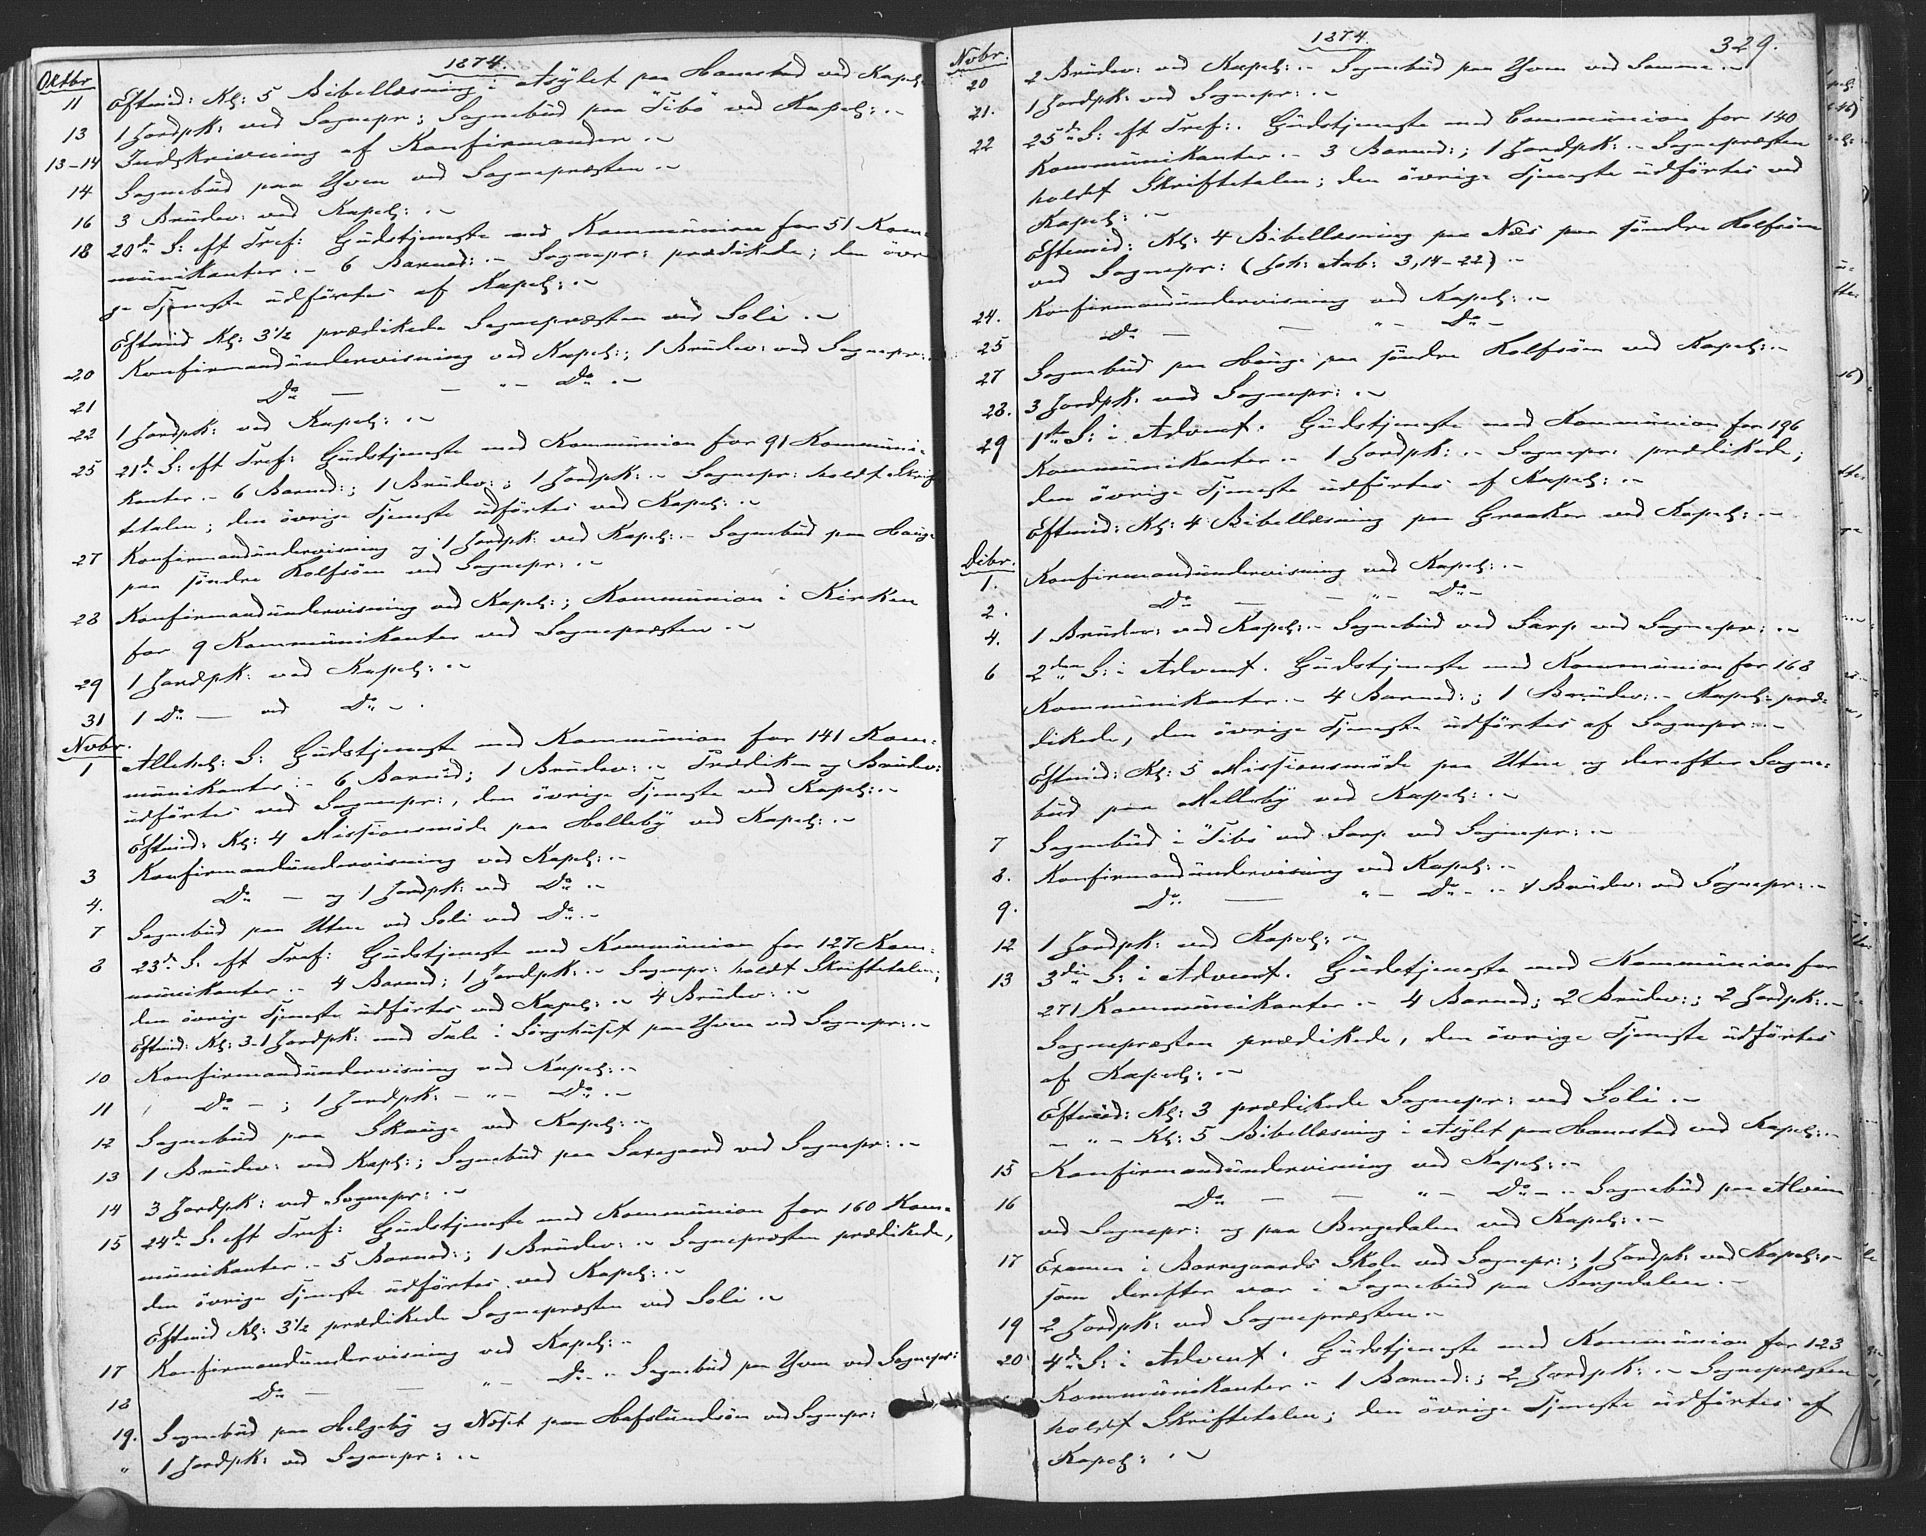 1874.
Oktbr
11 Eftmid: Kl: 5 Bibellæsning i Asylet paa Hannestad ved Kapel:
13 1 Jordpk: ved Sognepr: ; Sognebüd paa "Tibo" ved Kapel: .~
13-14 Indskrivning af Konfirmander .~
14 Sognebüd paa Yven ved Sognepræsten .~
16 3 Brüdev: ved Kapel: .~
18 20de S: eft Tref: Güdstjeneste med Kommünion for 51 Kom=
münikanter .~ 6 Barned: .~ Sognepr: prædikede; den övri
ge Tjeneste üdförtes af Kapel: .~
Eftmid Kl: 3½ prædikede Sognepræsten ved Soli .~
20 Konfirmandündervisning ved Kapel: ; 1 Brüdev: ved Sognepr: .
21 Do — — "~ Do .~
22 1 Jordpk: ved Kapel: .~
25 21de S: eft Tref: Güdstjeneste med Kommünion for 91 Kommüni=
kanter .~ 6 Barned: ; 1 Brüdev: ; 1 Jordpk: .~ Sognepr: holdt Skrif
tetalen; den övrige Tjeneste üdförtes ved Kapel: .~
27 Konfirmandündervisning og 1 Jordpk: ved Kapel: .~ Sognebüd paa Haüge
paa söndre Rolfsöen ved Sognepr: .~
28 Konfirmandündervisning ved Kapel: ; Kommünion i Kirken
for 9 Kommünikanter ved Sognepræsten .~
29 1 Jordpk: ved Kapel: .~
31 1 Do — ved Do ~ .
Novbr.
1 Allehel: S: Güdstjeneste med Kommünion for 141 Kom=
münikanter .~ 6 Barned; 1 Brüdev: .~ Prædiken og Brüdev:
üdförtes ved Sognepr: , den övrige Tjeneste ved Kapel: .~
Eftmid: Kl: 4 Missionsmöde paa Holleby ved Kapel: .~
3 Konfirmandündervisning ved Kapel: .~
4. Do — og 1 Jordpk: ved Do .~
7 Sognebüd paa Utne ved Soli ved Do .~
8 23de S: eft Tref: Güdstjeneste med Kommünion for 127 Kom=
münikanter .~ 4 Barned; 1 Jordpk: .~ Sognepr: holdt Skriftetalen;
den övrige Tjeneste üdförtes ved Kapel: .~ 4 Brüdev: .~
Eftmid: Kl: 3 - 1 Jordpk: med Tale i Sörgehüset paa Yven ved Sognepr: .~
10 Konfirmandündervisning ved Kapel: .~
11 Do — ; 1 Jordpk: — "~ Do .~
12 Sognebüd paa Skaüge ved Kapel: .~
13 1 Brüdev: ved Kapel: ; Sognebüd paa Saxegaard ved Sognepr: .~
14 3 Jordpk: ved Sognepr: .~
15 24de S: eft Tref: Güdstjeneste med Kommünion for 160 Kom=
münikanter .~ 5 Barned: ; 1 Brüdev: .~ Sognepræsten prædikede,
den övrige Tjeneste üdförtes ved Kapel: .~
Eftmid Kl: 3½ prædikede Sognepræsten ved Soli .~
17 Konfirmandündervisning ved Kapel: .~
18 Do — — "~ Do .~ Sognebüd paa Yven ved Sognepr:
19. Sognebüd paa Helgeby og Næset paa Hafslündsöen ved Sognepr:
" 1 Jordpk: ved Sognepr: .~
1874.
329.
Novbr:
20 2 Brüdev: ved Kapel: .~ Sognebüd paa Yven ved Samme .~
21. 1 Jordpk: ved Sognepr: .~
22 25de S: eft Tref: . Güdstjeneste med Communion for 140
Kommünikanter .~ 3 Barned: ; 1 Jordpk: .~ Sognepræsten
holdt Skriftetalen; den övrige Tjeneste üdförtes ved
Kapel: .~
Eftmid: Kl: 4 Bibellæsning paa Næs paa söndre Rolfsöen
ved Sognepr: (Joh: Aab: 3, 14-22) .~
24. Konfirmandündervisning ved Kapel: .~
25 Do — — "~ Do ~
27 Sognebüd paa Haüge paa söndre Rolfsöen ved Kapel: .~
28. 3 Jordpk: ved Sognepr: .~
29 1ste S: i Advent. Güdstjeneste med Kommünion for 196
Kommünikanter .~ 1 Jordpk: .~ Sognepr: prædikede;
den övrige Tjeneste üdförtes af Kapel: .~
Eftmid: Kl: 4 Bibellæsning paa Graaker ved Kapel: .~
Dcbr.
1. Konfirmandündervisning ved Kapel: .~
2. Do — — "~ Do ~
4. 1 Brüdev: ved Kapel: .~ Sognebüd ved Sarp ved Sognepr: .~
6 2den S: i Advent. Güdstjeneste med Kommünion for 168
Kommünikanter .~ 4 Barned: ; 1 Brüdev: .~ Kapel: præ=
dikede, den övrige Tjeneste üdförtes af Sognepr: .~
Eftmid: Kl: 5 Missionsmöde paa Utne og derefter Sogne=
büd paa Melleby ved Kapel: .~
7 Sognebüd i "Tibo" ved Sarp ved Sognepr: .~
8. Konfirmandündervisning ved Kapel: .~
9. Do. — "~ Do ~ .. 1 Brüdev: ved Sognepr: .~
12 1 Jordpk: ved Kapel: .~
13 3die S: i Advent. Güdstjeneste med Kommünion for
271 Kommünikanter .~ 4 Barned; 2 Brüdev: ; 2 Jordpk: .~
Sognepræsten prædikede, den övrige Tjeneste üdförtes
af Kapel: .~
Eftmid: Kl: 3 prædikede Sognepr: ved Soli .~
— " — Kl: 5 Bibellæsning i Asylet paa Hannestad ved Kapel: .~
15 Konfirmandündervisning ved Kapel: .~
16 Do — — "~ Do ~ .. Sognebüd paa Alvim
ved Sognepr: og paa Borgedalen ved Kapel: .~
17 Examen i Borregaards Skole ved Sognepr: ; 1 Jordpk: ved Kapel: .~
som derefter var i Sognebüd paa Borgedalen .~
19 2 Jordpk: ved Sognepræsten .~
20 4de S: i Advent. Güdstjeneste med Kommünion for 123
Kommünikanter .~ 1 Barned: ; 2 Jordpk: .~ Sognepræsten
holdt Skriftetalen; den övrige Tjeneste üdförtes af
Kapel: .~